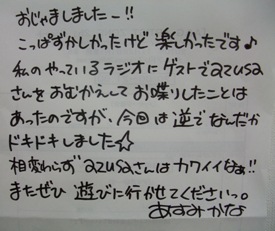 おじゃましましたー!!
こっぱずかしかったけど 楽しかったです♪
私のやっているラジオにゲストでazusa
さんをおむかえしてお喋りしたことは
あったのですが、今回は逆でなんだか
ドキドキしました☆
相変わらずazusaさんはカワイイなぁ!!
またぜひ 遊びに行かせてくださいっ。
あすみかな